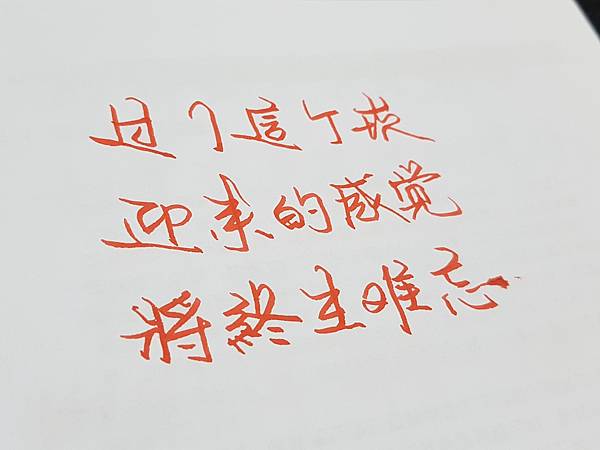 過了這个崁
迎来的感觉
將終生难忘